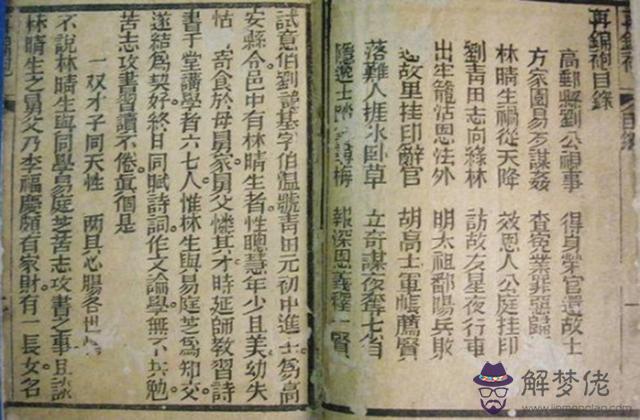 再錦袍目錄
高郵縣劉公視事 得身榮官還故士
方家園易歹謀姦 查冤業罪惡歸
林晴生禍從天降 效恩人公庭挂印
劉青田志向綠林 訪故友星夜行車
出牢籠怙恩法外 明太祖鄱陽兵敗
返故里挂印辭官 胡高士軍帳薦賢
落難人捱冰卧草 立奇謀夜奪七省
隱遯士踏 梅 報深恩義釋一賢
試意伯劉諱基字伯溫號青田元初中進士為高
安縣令邑中有林晴生者性聰慧年少且美幼失
怙寄食於母舅家舅父憐其才時延師教習詩
書于堂講學者六七人惟林生與易庭芝為知交
遂結為契好終日同賦詩詞作文論學無不共勉
苦志攻書習讀不倦眞個是
一双才子同天性 两具心腸各世
不說林晴生與同學易庭芝苦志攻書之事且說
林晴生之舅父乃李福慶頗有家財有一長女名
解梦佬